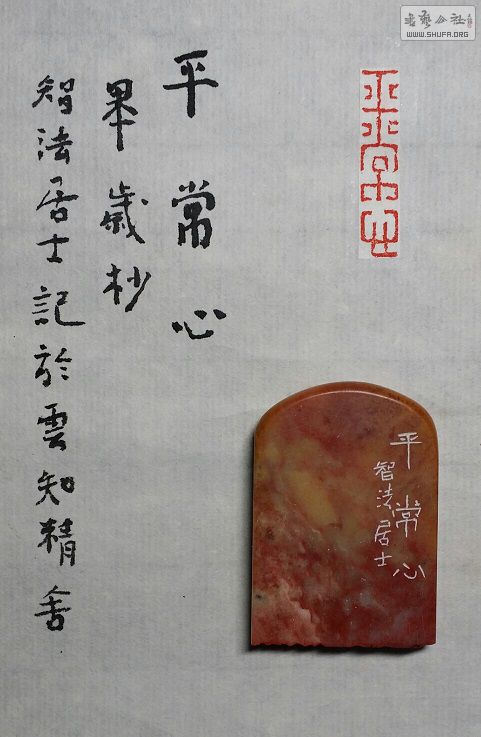 書藝公社
WWW.SHUFA.ORG
平常心
平常心
歲杪
智法居士記於雲知精舍
平常心
智法居士